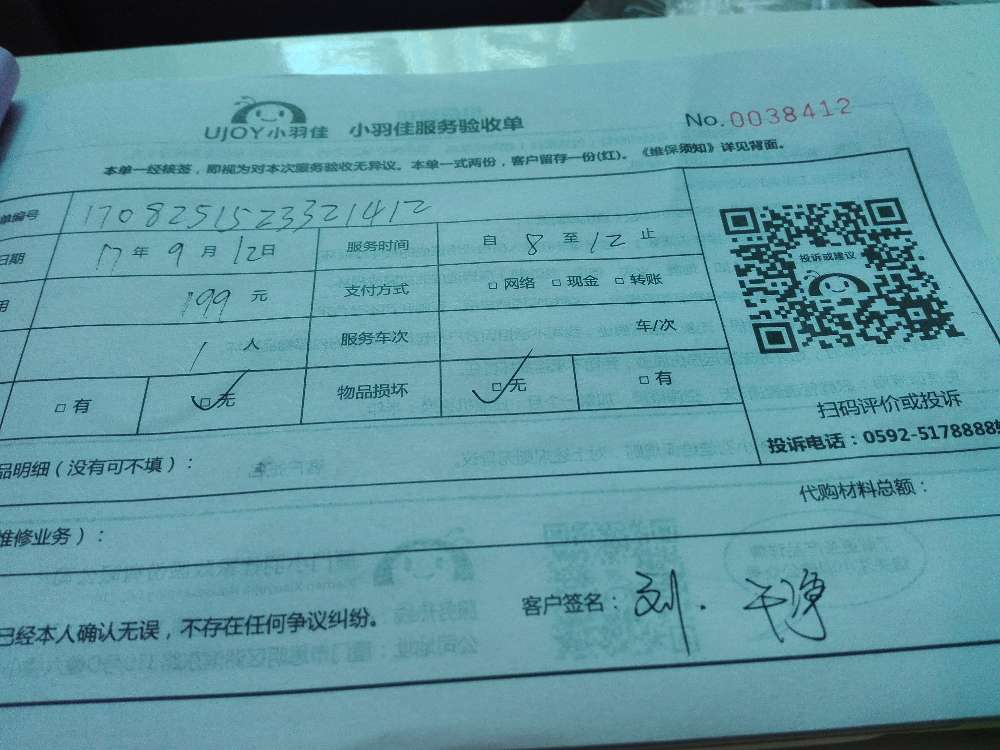 UJOY小羽佳 小羽佳服务验收单 No.0038412
本单一经核签，即视为对本次服务验收无异议。本单一式两份，客户留存一份(红)。《维保须知》详见背面。
单编号 1708251523321412
日期 17年9月12日 服务时间 自8至12止
用 199元 支付方式 □网络 □现金 □转账
1人 服务车次 车/次
□有 □无 物品损坏 □无 □有
投诉或建议
扫码评价或投诉
投诉电话：0592-5178889
品明细（没有可不填）：
代购材料总额：
维修业务）：
已经本人确认无误，不存在任何争议纠纷。
客户签名：刘．干净